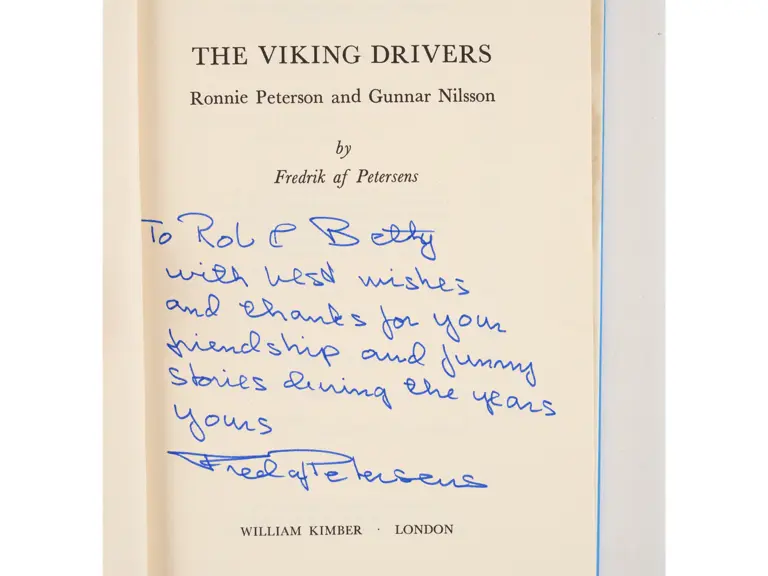 THE VIKING DRIVERS
Ronnie Peterson and Gunnar Nilsson
by
Fredrik af Petersens
To Rob & Betty
with best wishes
and thanks for your
friendship and funny
stories during the years
Yours
Fred af Petersens
WILLIAM KIMBER · LONDON